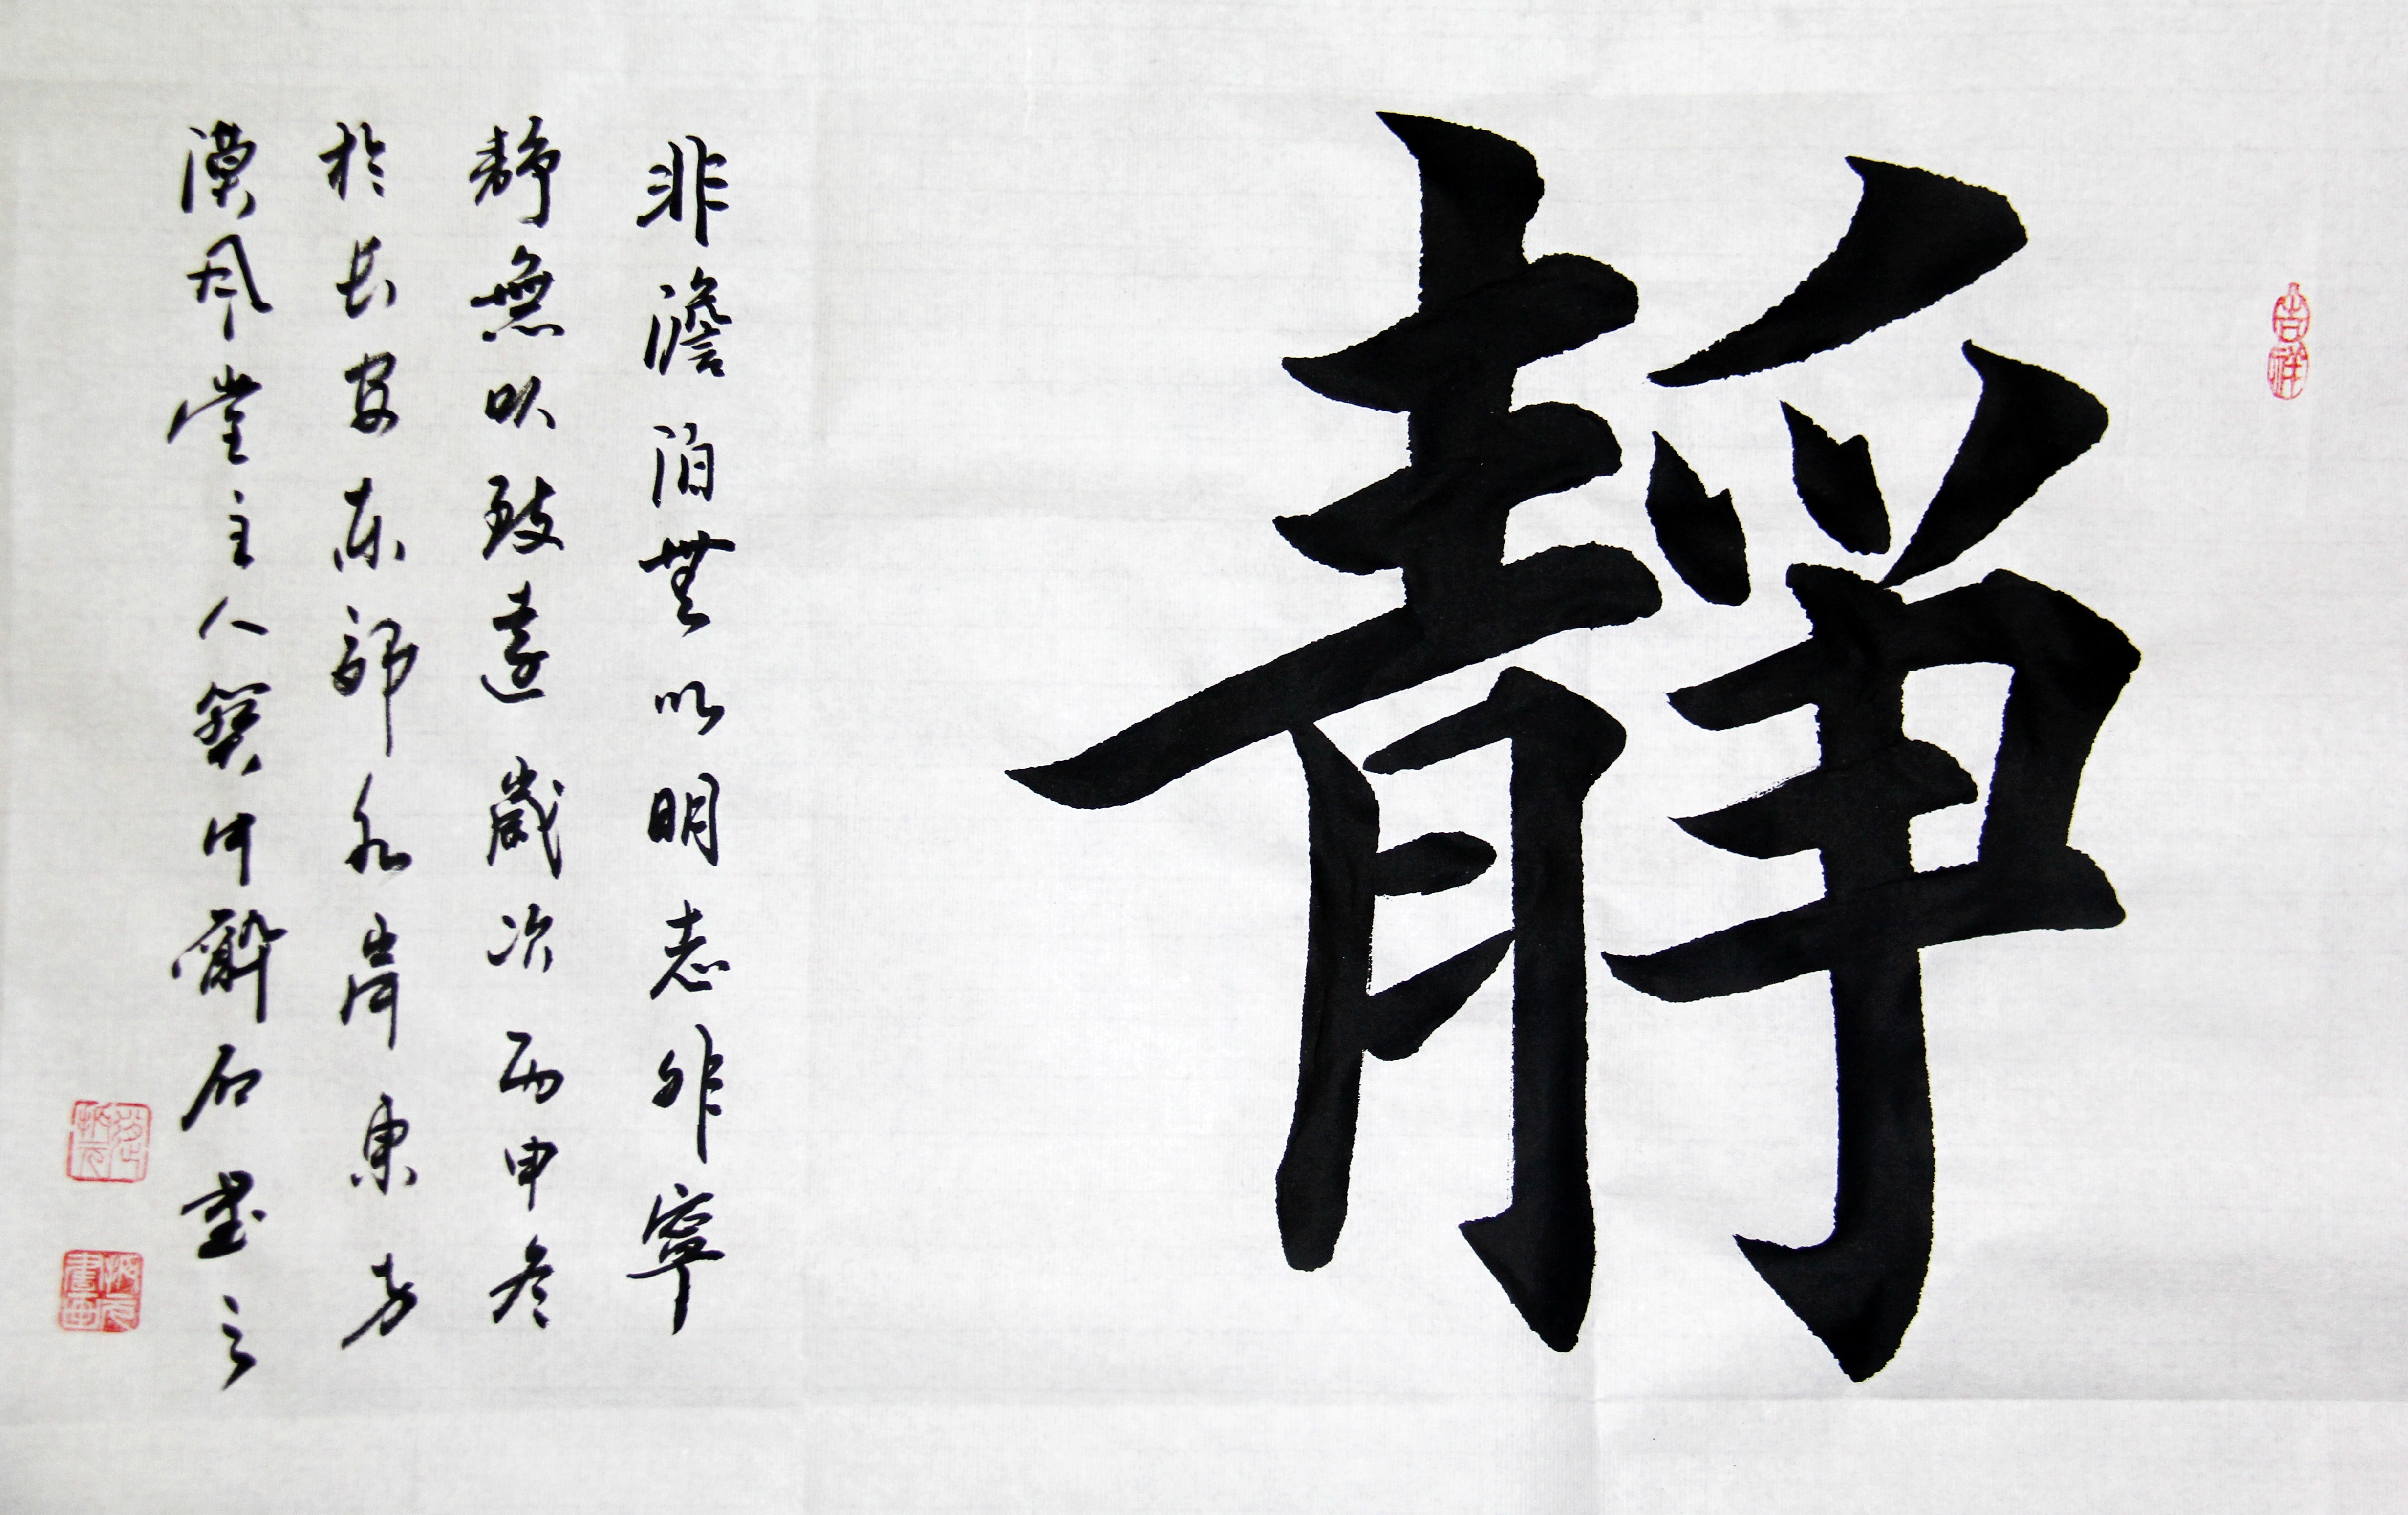 吉祥
靜
非澹泊無以明志非寧
靜無以致遠歲次丙申冬
於長安東郊水岸東方
漢風堂主人
書之